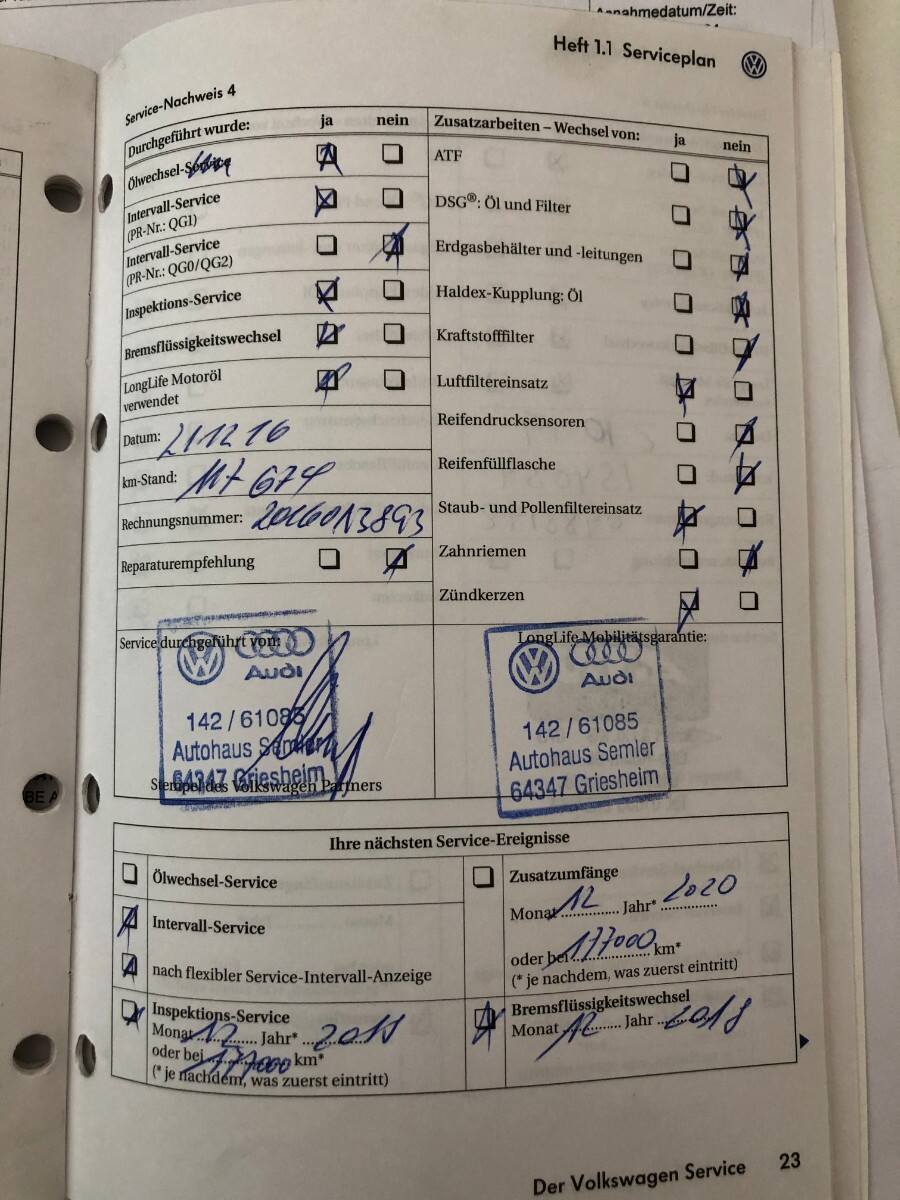 Annahmedatum/Zeit:
Heft 1.1 Serviceplan
Service-Nachweis 4
Durchgeführt wurde: ja nein
Ölwechsel-Service
Intervall-Service
(PR-Nr.: QG1)
Intervall-Service
(PR-Nr.: QG0/QG2)
Inspektions-Service
Bremsflüssigkeitswechsel
LongLife Motoröl
verwendet
Datum: 211216
km-Stand: 117 674
Rechnungsnummer: 2016013893
Reparaturempfehlung
Zusatzarbeiten – Wechsel von: ja nein
ATF
DSG®: Öl und Filter
Erdgasbehälter und -leitungen
Haldex-Kupplung: Öl
Kraftstofffilter
Luftfiltereinsatz
Reifendrucksensoren
Reifenfüllflasche
Staub- und Pollenfiltereinsatz
Zahnriemen
Zündkerzen
Service durchgeführt von:
Audi
142 / 61085
Autohaus Semler
64347 Griesheim
Stempel des Volkswagen Partners
LongLife Mobilitätsgarantie:
Audi
142 / 61085
Autohaus Semler
64347 Griesheim
Ihre nächsten Service-Ereignisse
Ölwechsel-Service
Intervall-Service
nach flexibler Service-Intervall-Anzeige
Inspektions-Service
Monat 12 Jahr* 2018
oder bei 177000 km*
(* je nachdem, was zuerst eintritt)
Zusatzumfänge
Monat 12 Jahr* 2020
oder bei 177000 km*
(* je nachdem, was zuerst eintritt)
Bremsflüssigkeitswechsel
Monat 12 Jahr 2018
Der Volkswagen Service 23
BE A